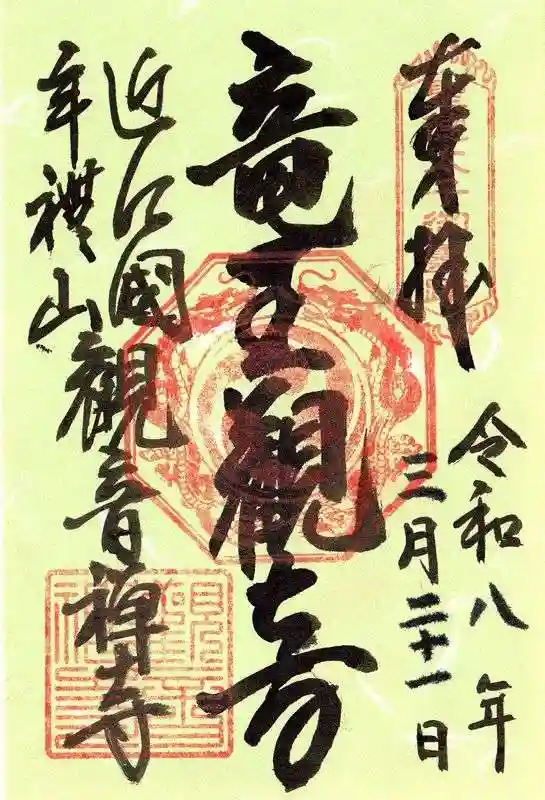 奉拝
令和八年
三月二十一日
竜王觀音
近江國
牟禮山
觀音禅寺